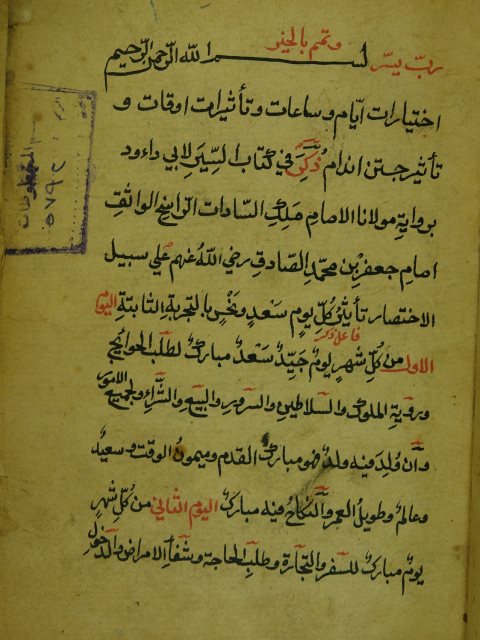 ربّ يسّر بسم الله الرّحمن الرّحيم وتمم بالخير
اختيارات ايّام وساعات وتأثيرات اوقات و
تأثير جستن اندام ذُكِرَ في كتاب السِّيَر لابي داءود
برواية مولانا الامام مَلِك السّادات الرّاسخ الواثق
امام جعفر بن محمّد الصّادق رضي الله عنهم علي سبيل
الاختصار تأثيرُ كُلّ يومٍ سَعْدٍ ونَحْسٍ بالتجربة الثّابتة اليوم
الاول من كُلّ شهرٍ يومٌ جَيّدٌ سَعْدٌ مباركٌ لطلب الحوائج
ورؤية الملوك والسّلاطين والسّرور والبيع والشّراء ولجميع الامور
وان وُلِدَ فيه ولدٌ فهو مبارك القدم وميمونُ الوقت وسعيدٌ
وعالمٌ وطويلُ العمر والنّكاحُ فيه مباركٌ اليوم الثّاني من كُلّ شهرٍ
يومٌ مباركٌ للسفر والتجارة وطلب الحاجة وشفاء الامراض والدّخول
المخطوطات
٥٧٩٢